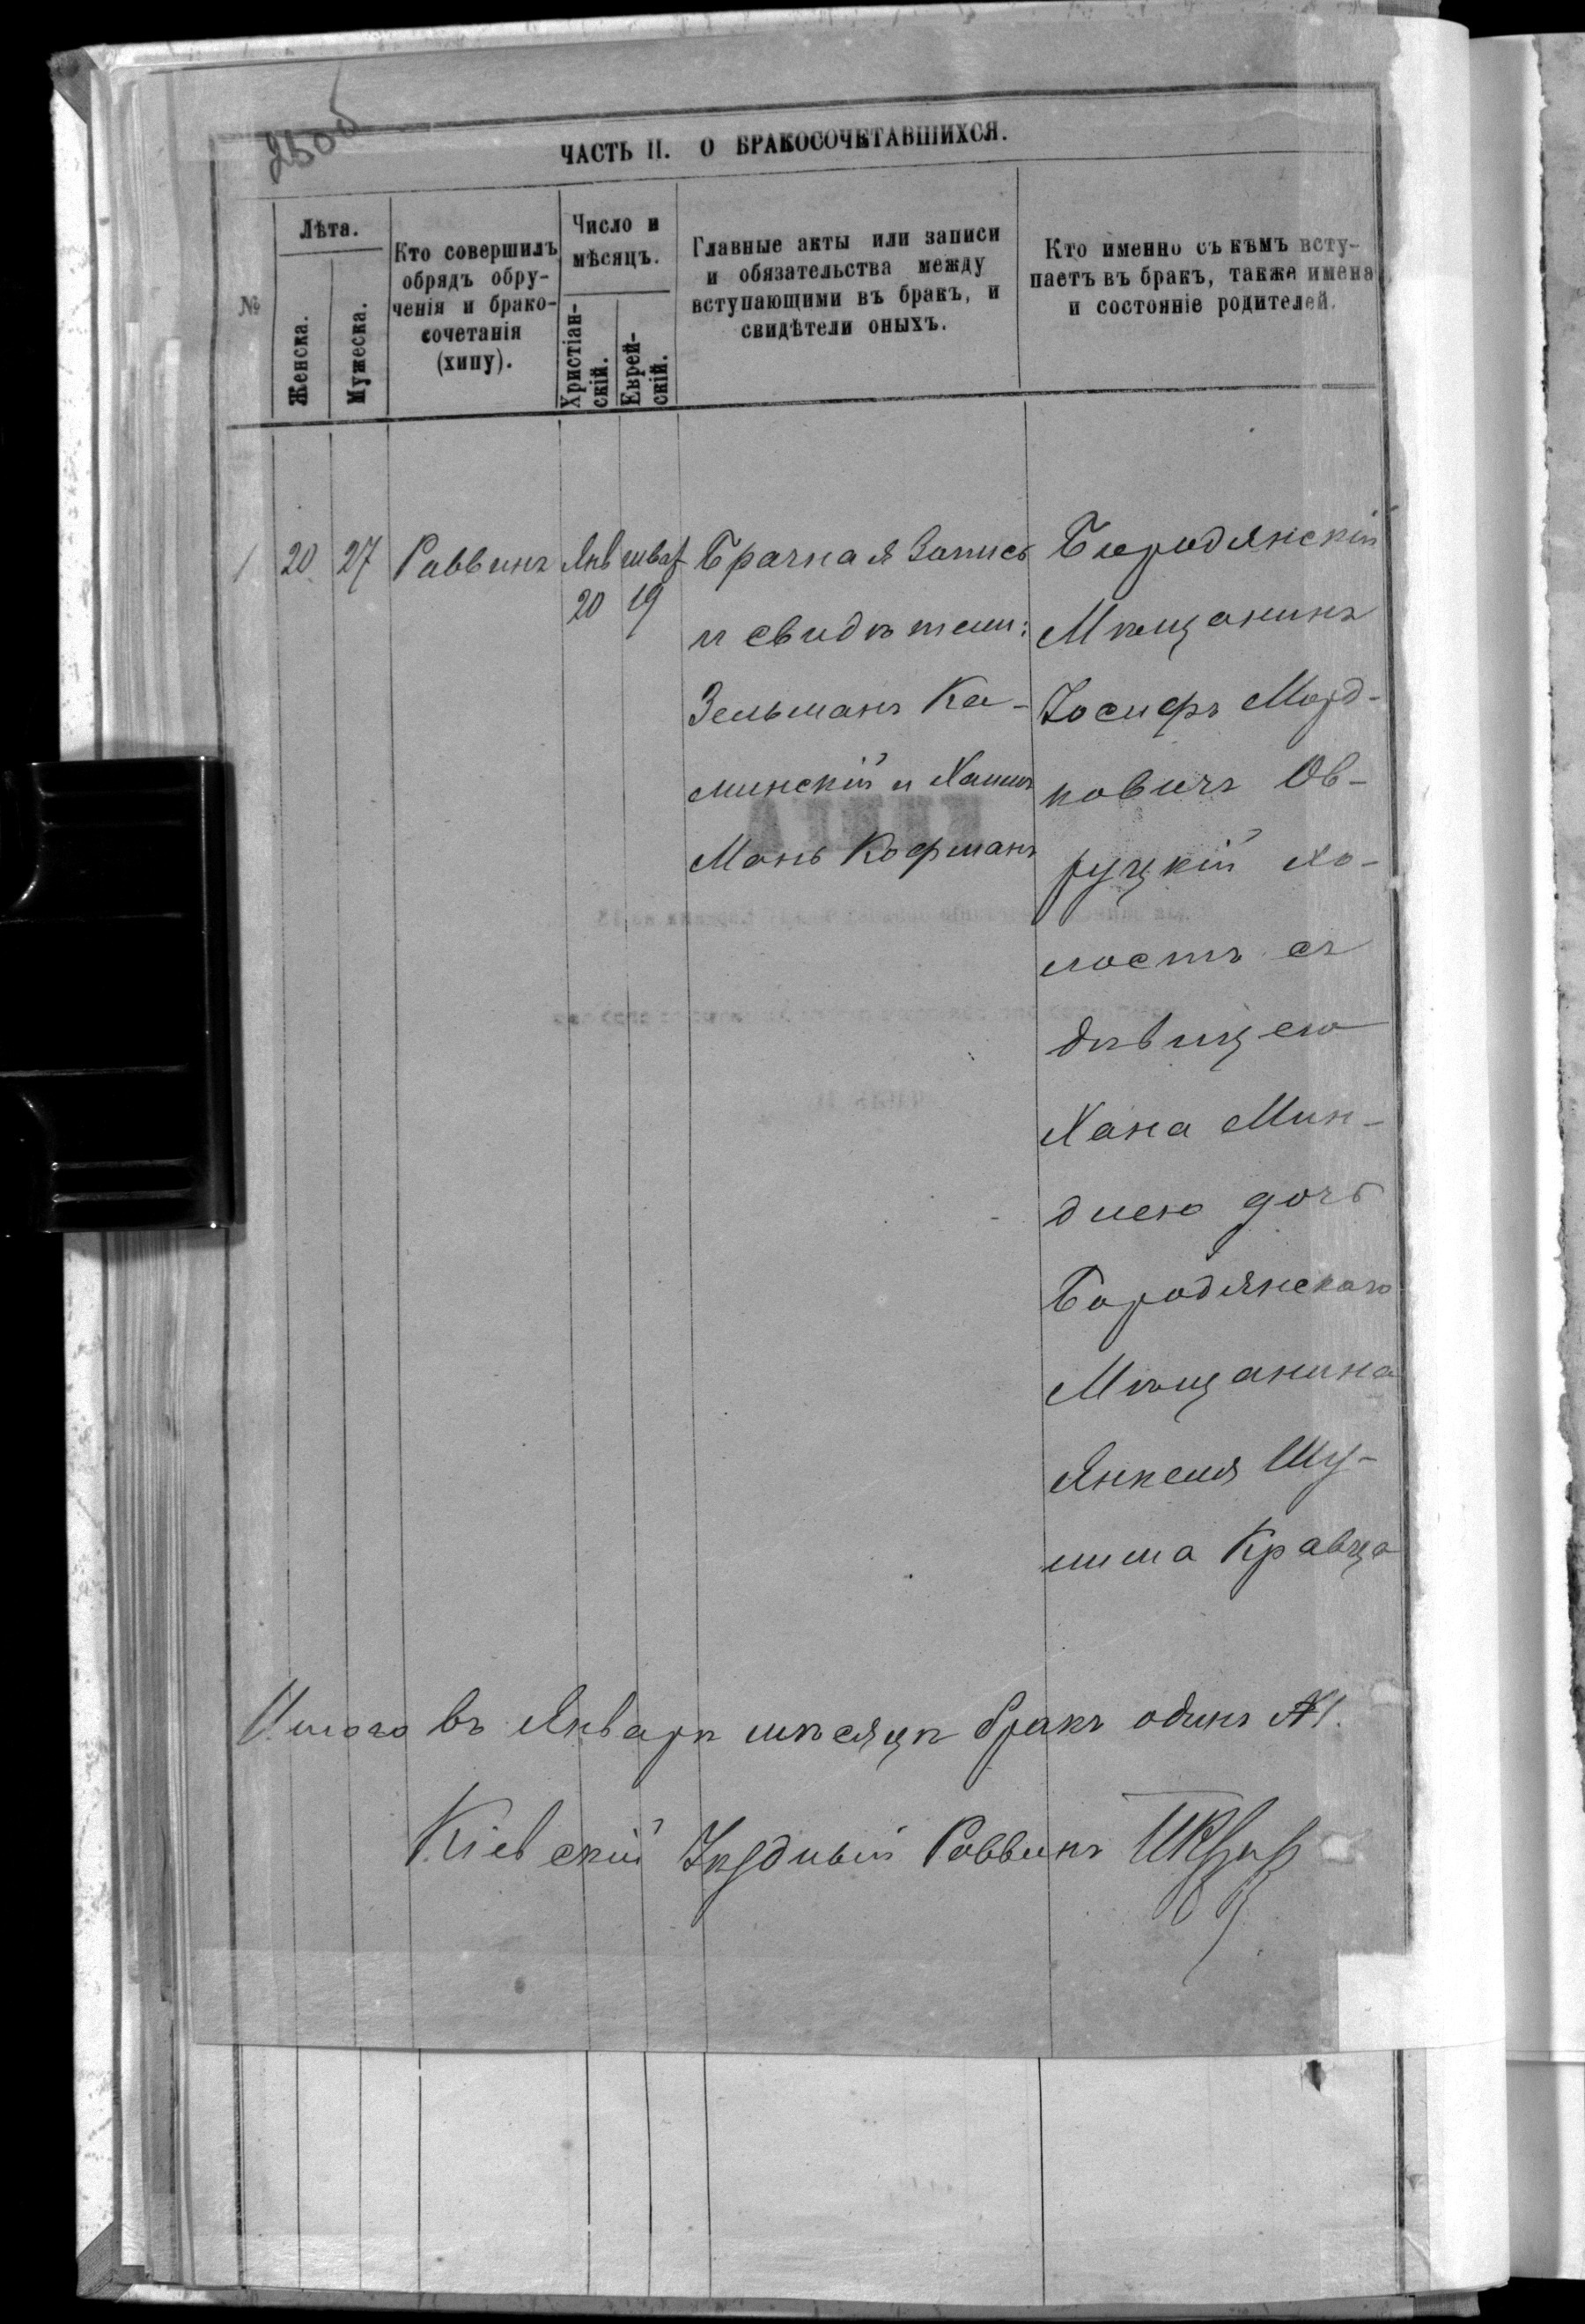 250об
ЧАСТЬ II. О БРАКОСОЧЕТАВШИХСЯ.
№
Лѣта.
Женска.
Мужеска.
Кто совершилъ
обрядъ обру-
ченія и брако-
сочетанія
(хипу).
Число и
мѣсяцъ.
Христіан-
скій.
Еврей-
скій.
Главные акты или записи
и обязательства между
вступающими въ бракъ, и
свидѣтели оныхъ.
Кто именно съ кѣмъ всту-
паетъ въ бракъ, также имена
и состояніе родителей.
1 20 27 Раввинъ
Янв
20
шват
19
Брачная запись
и свидѣтели:
Зельманъ Ка-
минскій и Хаимъ
Мань Кофманъ
Бородянскій
Мѣщанинъ
Іосифъ Морд-
ковичъ Ов-
руцкій хо-
лостъ съ
дѣвицею
Хана Мин-
длею дочь
Бородянскаго
Мѣщанина
Янкеля Шу-
лима Кравца
Итого въ Январѣ мѣсяцѣ бракъ одинъ №1.
Кіевскій Уѣздный Раввинъ